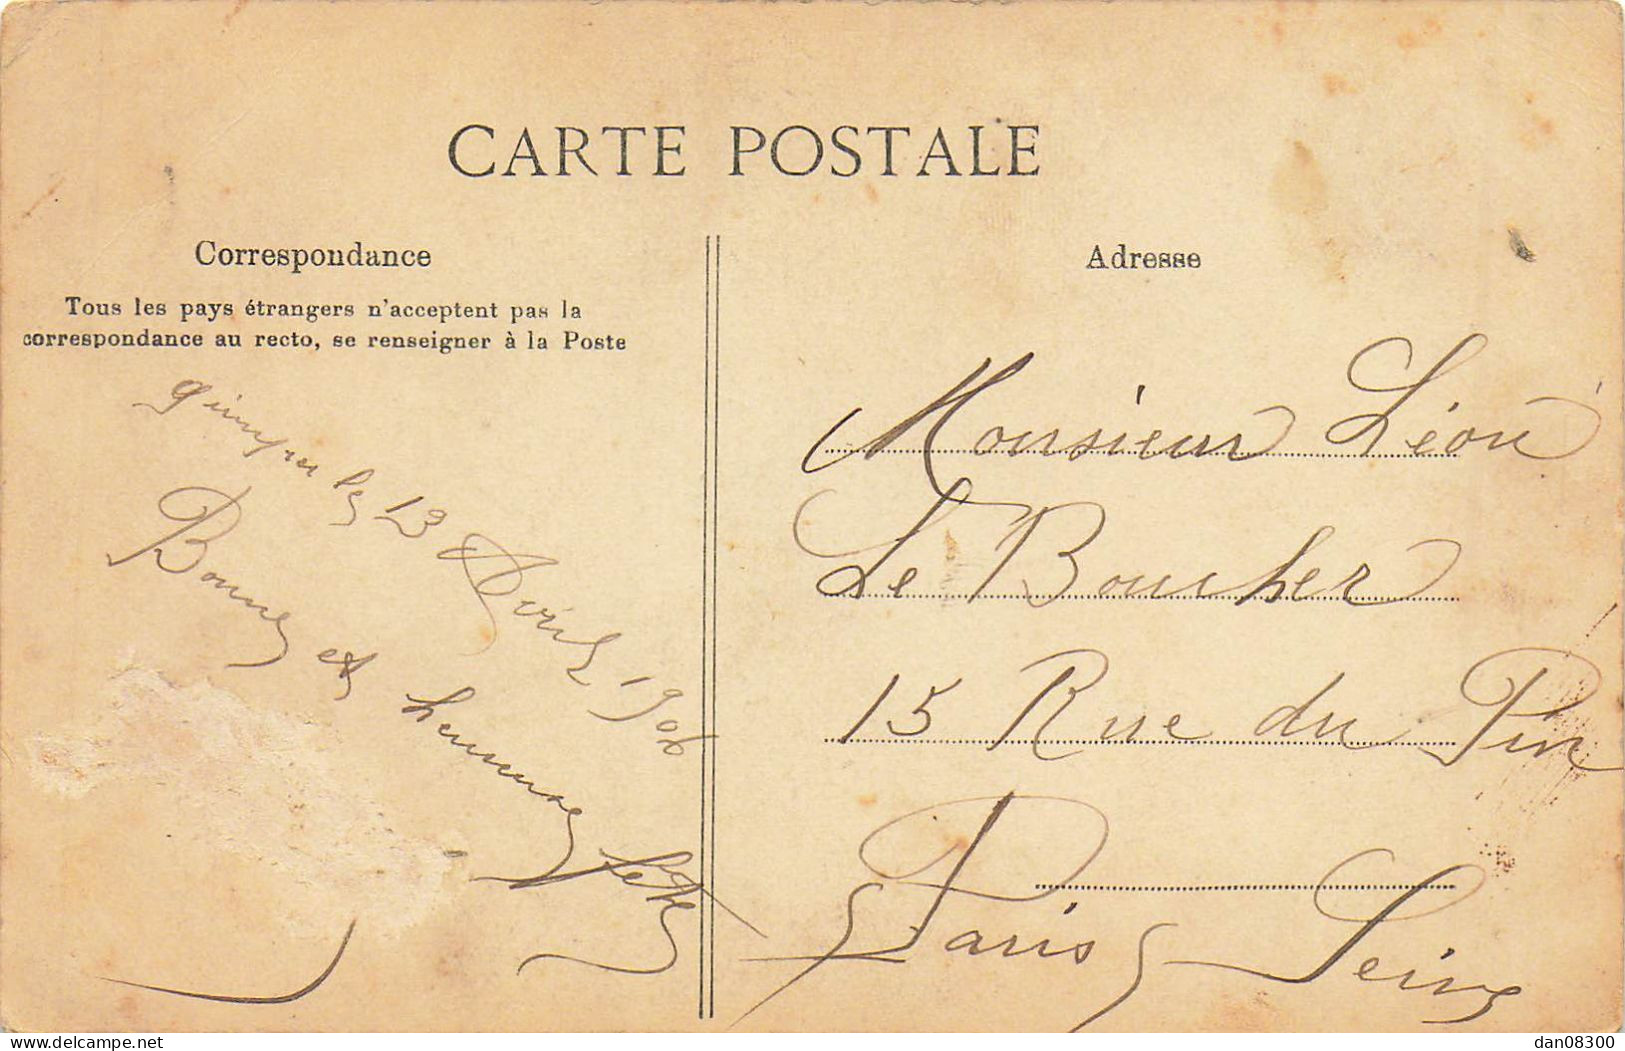 CARTE POSTALE
Correspondance
Tous les pays étrangers n'acceptent pas la
correspondance au recto, se renseigner à la Poste
quimper le 13 Avril 1906
Bonne et heureuse fête
Adresse
Monsieur Léon
Le Bourher
15 Rue du Pin
Paris Seine
delcampe.net
dan08300